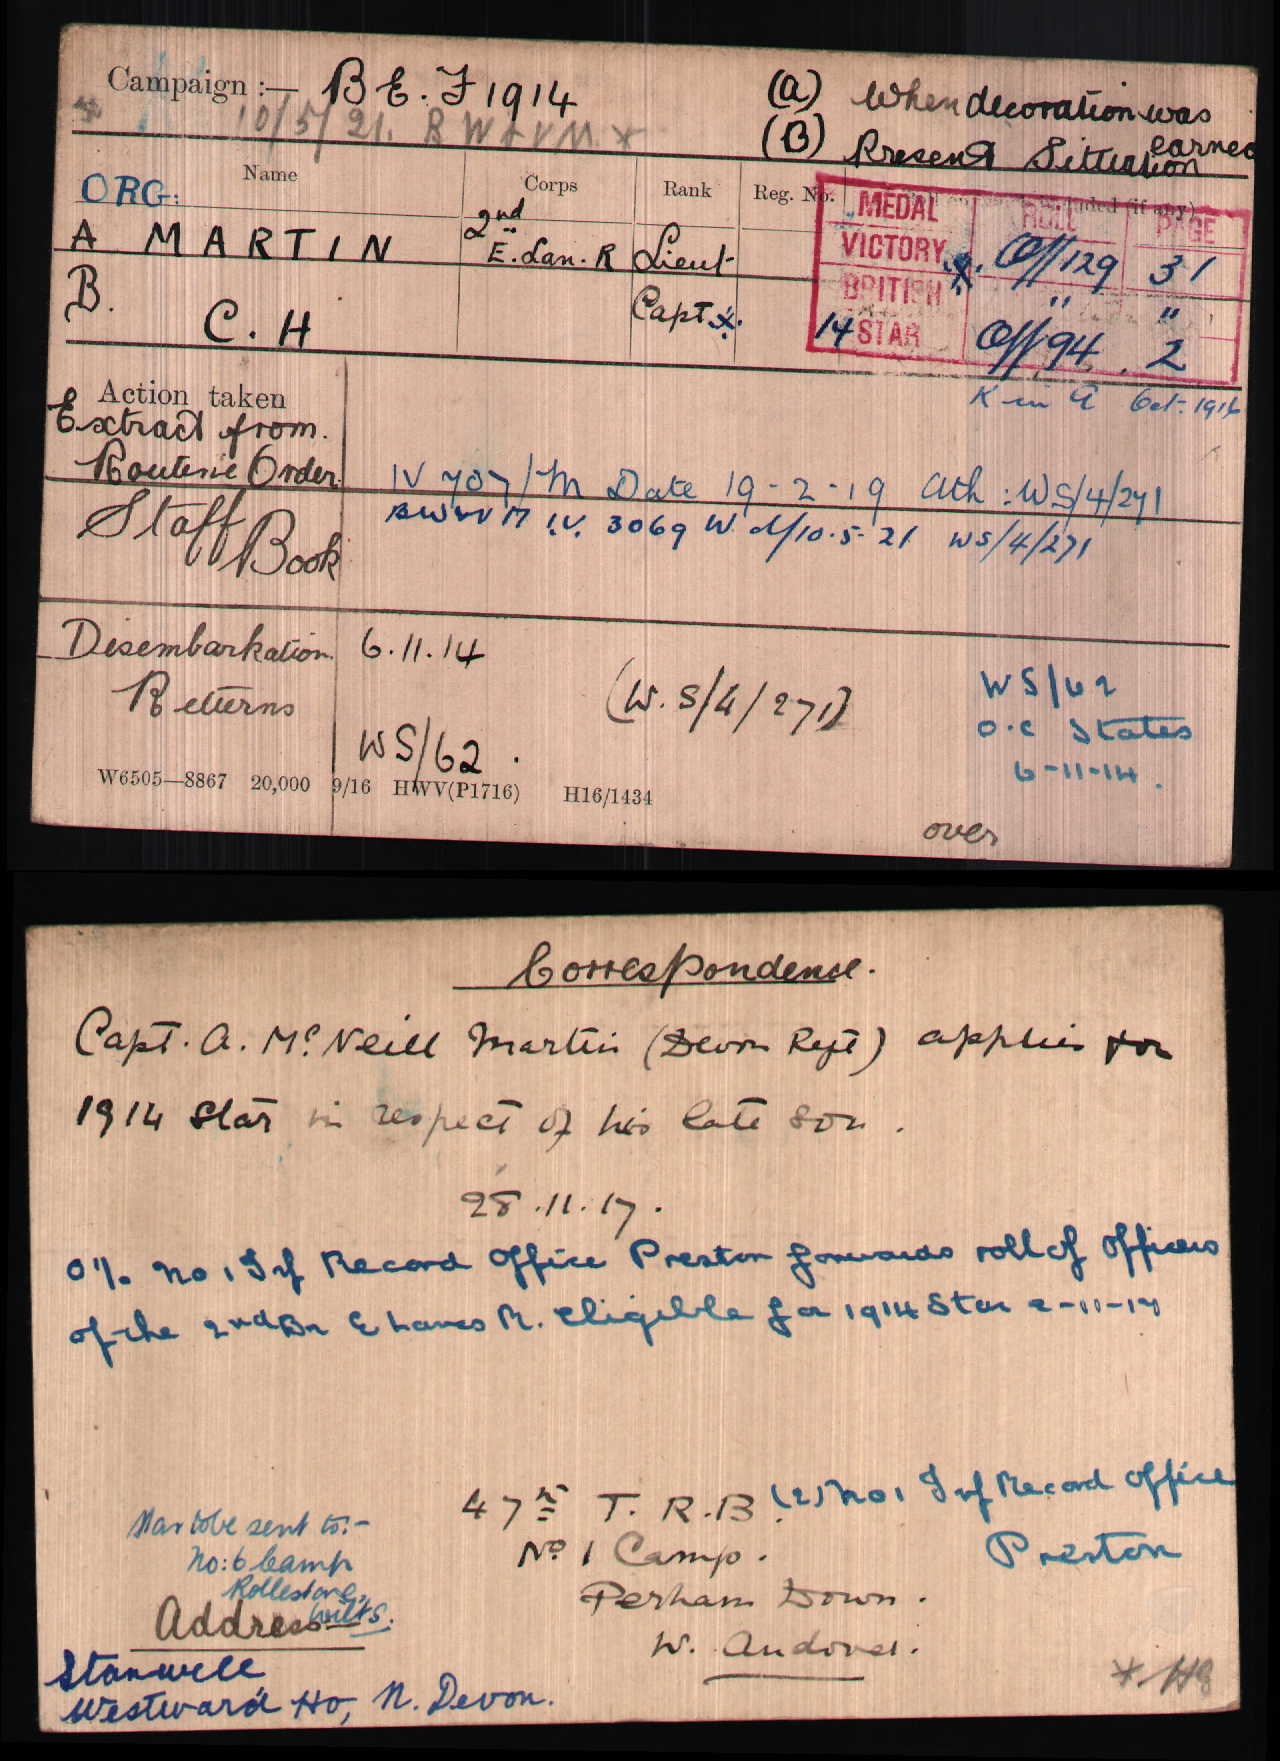 Campaign :— B E. F 1914
10/5/21. B W & V M *
(A) When decoration was earned
(B) Present Situation
ORG:
Name Corps Rank Reg. No.
MEDAL ROLL PAGE
A MARTIN 2nd E. Lan. R Lieut
VICTORY *. Off 129 31
BRITISH " "
B. C. H Capt *.
14 STAR Off 94. 2
K in A Oct. 1916
Action taken
Extract from.
Routine Order IV 707/M Date 19-2-19 Ath : WS/4/271
Staff Book BW & V M I.V. 3069 W. d/10.5.21 WS/4/271
Disembarkation 6.11.14
Returns (W.S/4/271)
WS/62
O.C States
6-11-14.
WS/62.
W6505—8867 20,000 9/16 HWV(P1716) H16/1434
over
Correspondence.
Capt. A. McNeill Martin (Devon Regt) applies for
1914 Star in respect of his late son.
28.11.17.
O/c No 1 Inf Record Office Preston forwards roll of Officers
of the 2nd Bn E Lancs R. eligible for 1914 Star 2-11-17
47th T. R. B. (2) No 1 Inf Record Office
Preston
No 1 Camp.
Perham Down.
W. Andover.
Star to be sent to:-
No: 6 Camp
Rollestone,
Wilts.
Address
Stanwell
Westward Ho, N. Devon.